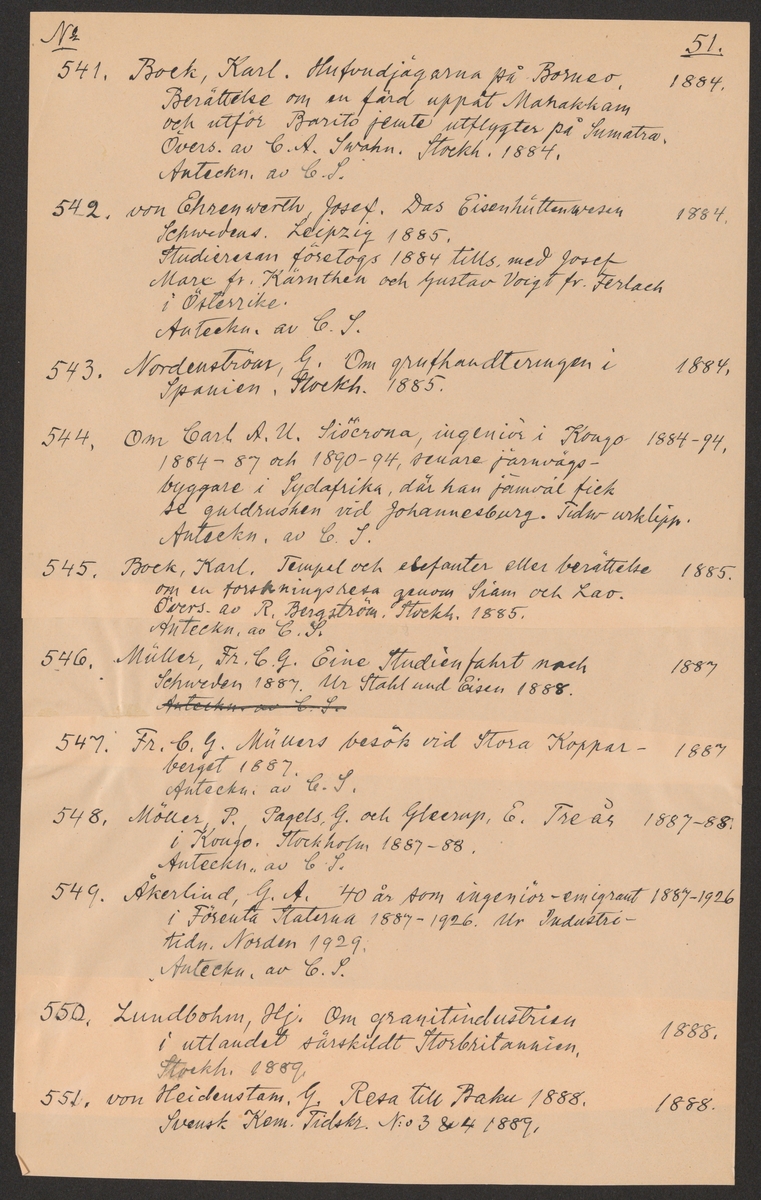 No 51.
541. Bock, Karl. Hufvudjägarna på Borneo. 1884.
Berättelse om en färd uppåt Mahakkam
och utför Barito jemte utflygter på Sumatra.
Övers. av C. A. Swahn. Stockh. 1884.
Anteckn. av C. S.
542. von Ehrenwerth, Josef. Das Eisenhüttenwesen 1884.
Schwedens. Leipzig 1885.
Studieresan företogs 1884 tills. med Josef
Marx fr. Kärnthen och Gustav Voigt fr. Ferlach
i Österrike.
Anteckn. av C. S.
543. Nordenström, G. Om grufhandteringen i 1884.
Spanien. Stockh. 1885.
544. Om Carl A. U. Siöcrona, ingeniör i Kongo 1884-94.
1884-87 och 1890-94, senare järnvägs-
byggare i Sydafrika, där han jämväl fick
se guldrushen vid Johannesburg. Tidn urklipp.
Anteckn. av C. S.
545. Bock, Karl. Tempel och elefanter eller berättelse 1885.
om en forskningsresa genom Siam och Lao.
Övers. av R. Bergström. Stockh. 1885.
Anteckn. av C. S.
546. Müller, Fr. C. G. Eine Studienfahrt nach 1887
Schweden 1887. Ur Stahl und Eisen 1888.
Anteckn. av C. S.
547. Fr. C. G. Müllers besök vid Stora Koppar- 1887
berget 1887.
Anteckn. av C. S.
548. Möller, P., Pagels, G. och Gleerup, E. Tre år 1887-88.
i Kongo. Stockholm 1887-88.
Anteckn. av C. S.
549. Åkerlind, G. A. 40 år som ingeniör-emigrant 1887-1926
i Förenta Staterna 1887-1926. Ur Industri-
tidn. Norden 1929.
Anteckn. av C. S.
550. Lundbohm, Hj. Om granitindustrien 1888.
i utlandet särskildt Storbritannien.
Stockh. 1889.
551. von Heidenstam, G. Resa till Baku 1888. 1888.
Svensk Kem. Tidskr. N:o 3 & 4 1889.